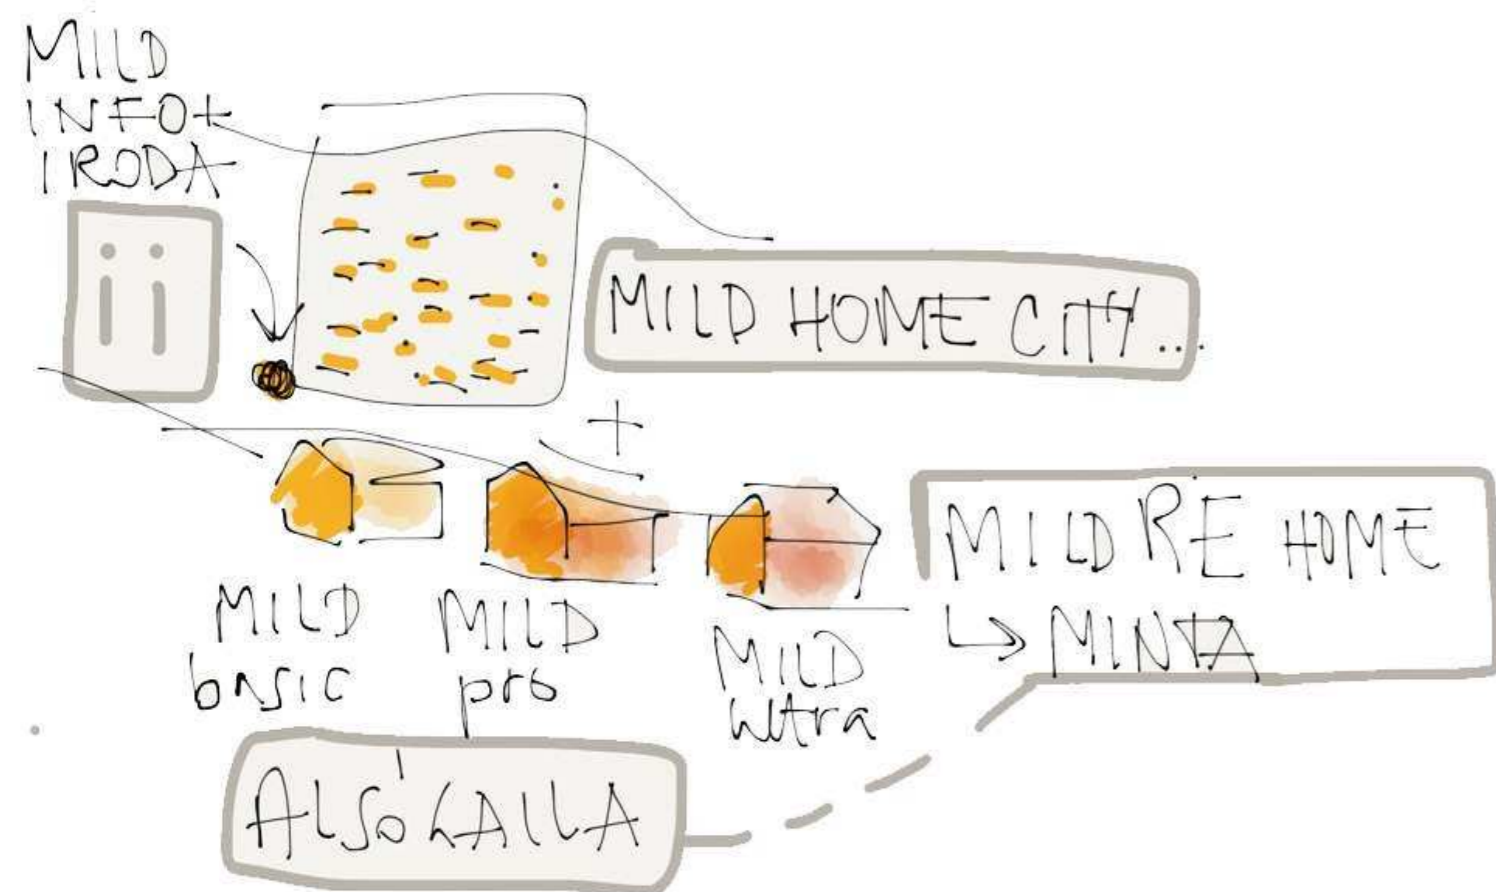 MILD
INFO+
IRODA
ii
MILD HOME CITY...
+
MILD
basic
MILD
pro
MILD
ultra
MILD RE HOME
↳ MINTA
ALSÓGALLA